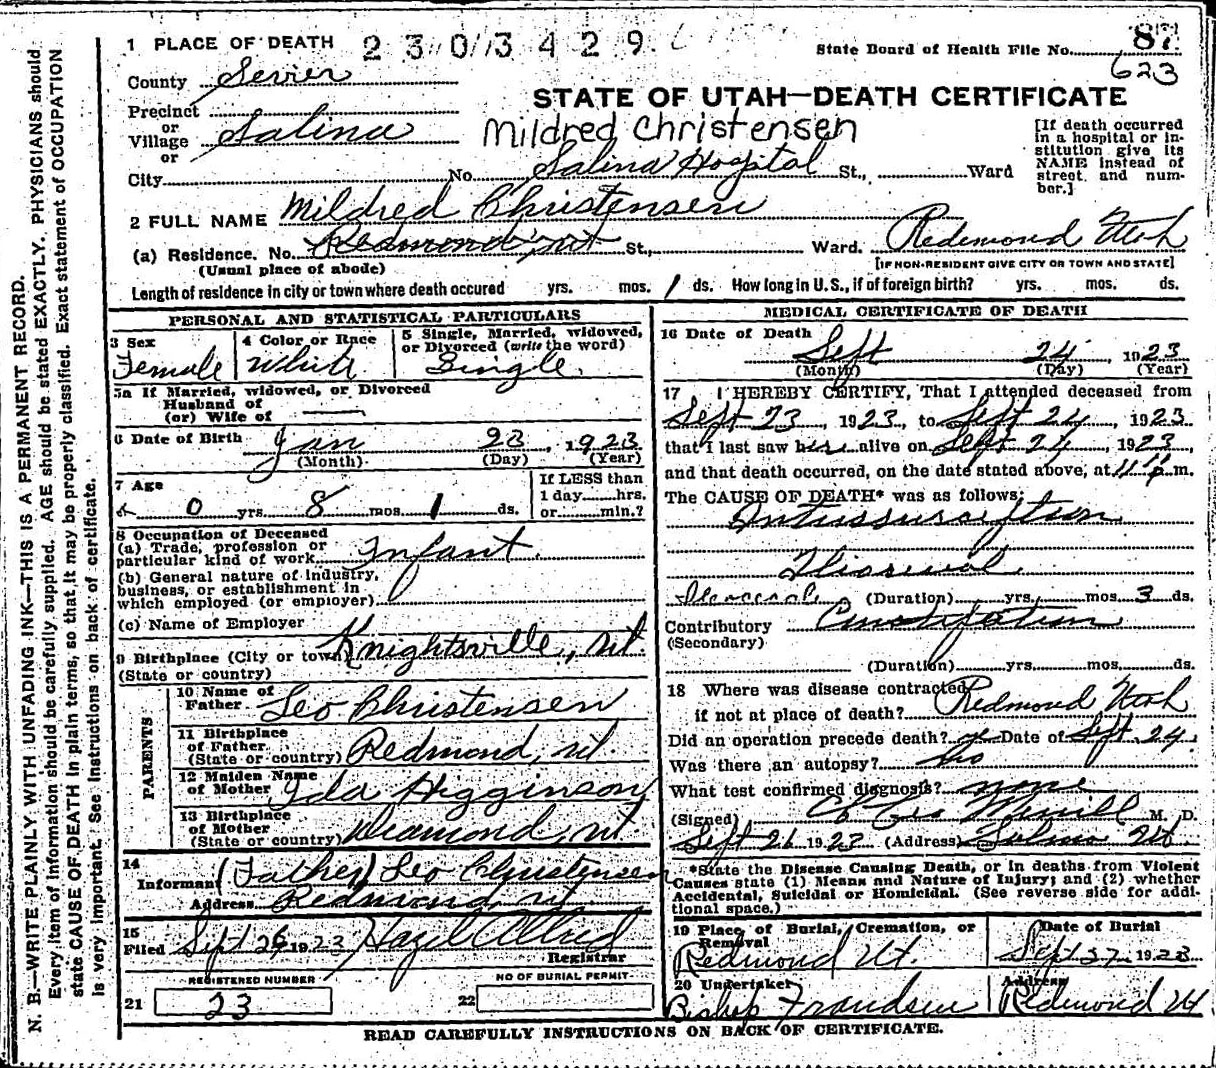 N. B.—WRITE PLAINLY WITH UNFADING INK—THIS IS A PERMANENT RECORD.
Every item of information should be carefully supplied. AGE should be stated EXACTLY. PHYSICIANS should
state CAUSE OF DEATH in plain terms, so that it may be properly classified. Exact statement of OCCUPATION
is very important. See Instructions on back of certificate.
1 PLACE OF DEATH 2303429
State Board of Health File No. 87
623
County Sevier
STATE OF UTAH—DEATH CERTIFICATE
Precinct
or
Village Salina
or
Mildred Christensen
[If death occurred
in a hospital or in-
stitution give its
NAME instead of
street and num-
ber.]
City No. Salina Hospital St., Ward
2 FULL NAME Mildred Christensen
(a) Residence. No. Redmond, Ut St., Ward. Redmond Utah
(Usual place of abode) [IF NON-RESIDENT GIVE CITY OR TOWN AND STATE]
Length of residence in city or town where death occured yrs. mos. 1 ds. How long in U. S., if of foreign birth? yrs. mos. ds.
PERSONAL AND STATISTICAL PARTICULARS
3 Sex 4 Color or Race 5 Single, Married, widowed,
or Divorced (write the word)
Female White Single.
5a If Married, widowed, or Divorced
Husband of
(or) Wife of
6 Date of Birth Jan 23, 1923
(Month) (Day) (Year)
7 Age If LESS than
1 day hrs.
0 yrs. 8 mos. 1 ds. or min.?
8 Occupation of Deceased
(a) Trade, profession or
particular kind of work Infant
(b) General nature of industry,
business, or establishment in
which employed (or employer)
(c) Name of Employer
9 Birthplace (City or town) Knightsville, Ut.
(State or country)
PARENTS
10 Name of
Father Leo Christensen
11 Birthplace
of Father
(State or country) Redmond, Ut.
12 Maiden Name
of Mother Ida Higginson
13 Birthplace
of Mother
(State or country) Diamond, Ut.
14
Informant (Father) Leo Christensen
Address Redmond, Ut.
15
Filed Sept 26 1923 Hazel Allred
Registrar
REGISTERED NUMBER NO OF BURIAL PERMIT
21 23 22
MEDICAL CERTIFICATE OF DEATH
16 Date of Death
Sept 24, 1923
(Month) (Day) (Year)
17 I HEREBY CERTIFY, That I attended deceased from
Sept 23, 1923, to Sept 24, 1923
that I last saw her alive on Sept 24, 1923,
and that death occurred, on the date stated above, at 11 p m.
The CAUSE OF DEATH* was as follows:
Intussusception
(Duration) yrs. mos. 3 ds.
Contributory Constipation
(Secondary)
(Duration) yrs. mos. ds.
18 Where was disease contracted
if not at place of death? Redmond Utah
Did an operation precede death? Date of Sept. 24,
Was there an autopsy? No
What test confirmed diagnosis? none
(Signed) M. D.
Sept 26 1923 (Address) Salina Ut.
*State the Disease Causing Death, or in deaths from Violent
Causes state (1) Means and Nature of Injury; and (2) whether
Accidental, Suicidal or Homicidal. (See reverse side for addi-
tional space.)
19 Place of Burial, Cremation, or Date of Burial
Removal
Redmond Ut. Sept 27 1923
20 Undertaker Address
Bishop Frandsen Redmond Ut
READ CAREFULLY INSTRUCTIONS ON BACK OF CERTIFICATE.